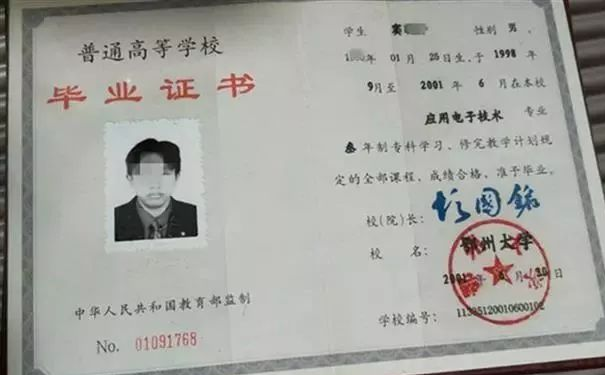 普通高等学校
毕业证书
中华人民共和国教育部监制
No. 01091768
学生 性别 男,
年 01 月 25 日生,于 1998 年
9 月至 2001 年 6 月在本校
应用电子技术 专业
叁 年制专科学习、修完教学计划规
定的全部课程、成绩合格、准予毕业。
校(院)长:
校 名: 鄂州大学
2001 年 6 月 30 日
学校编号: 11335120010600102